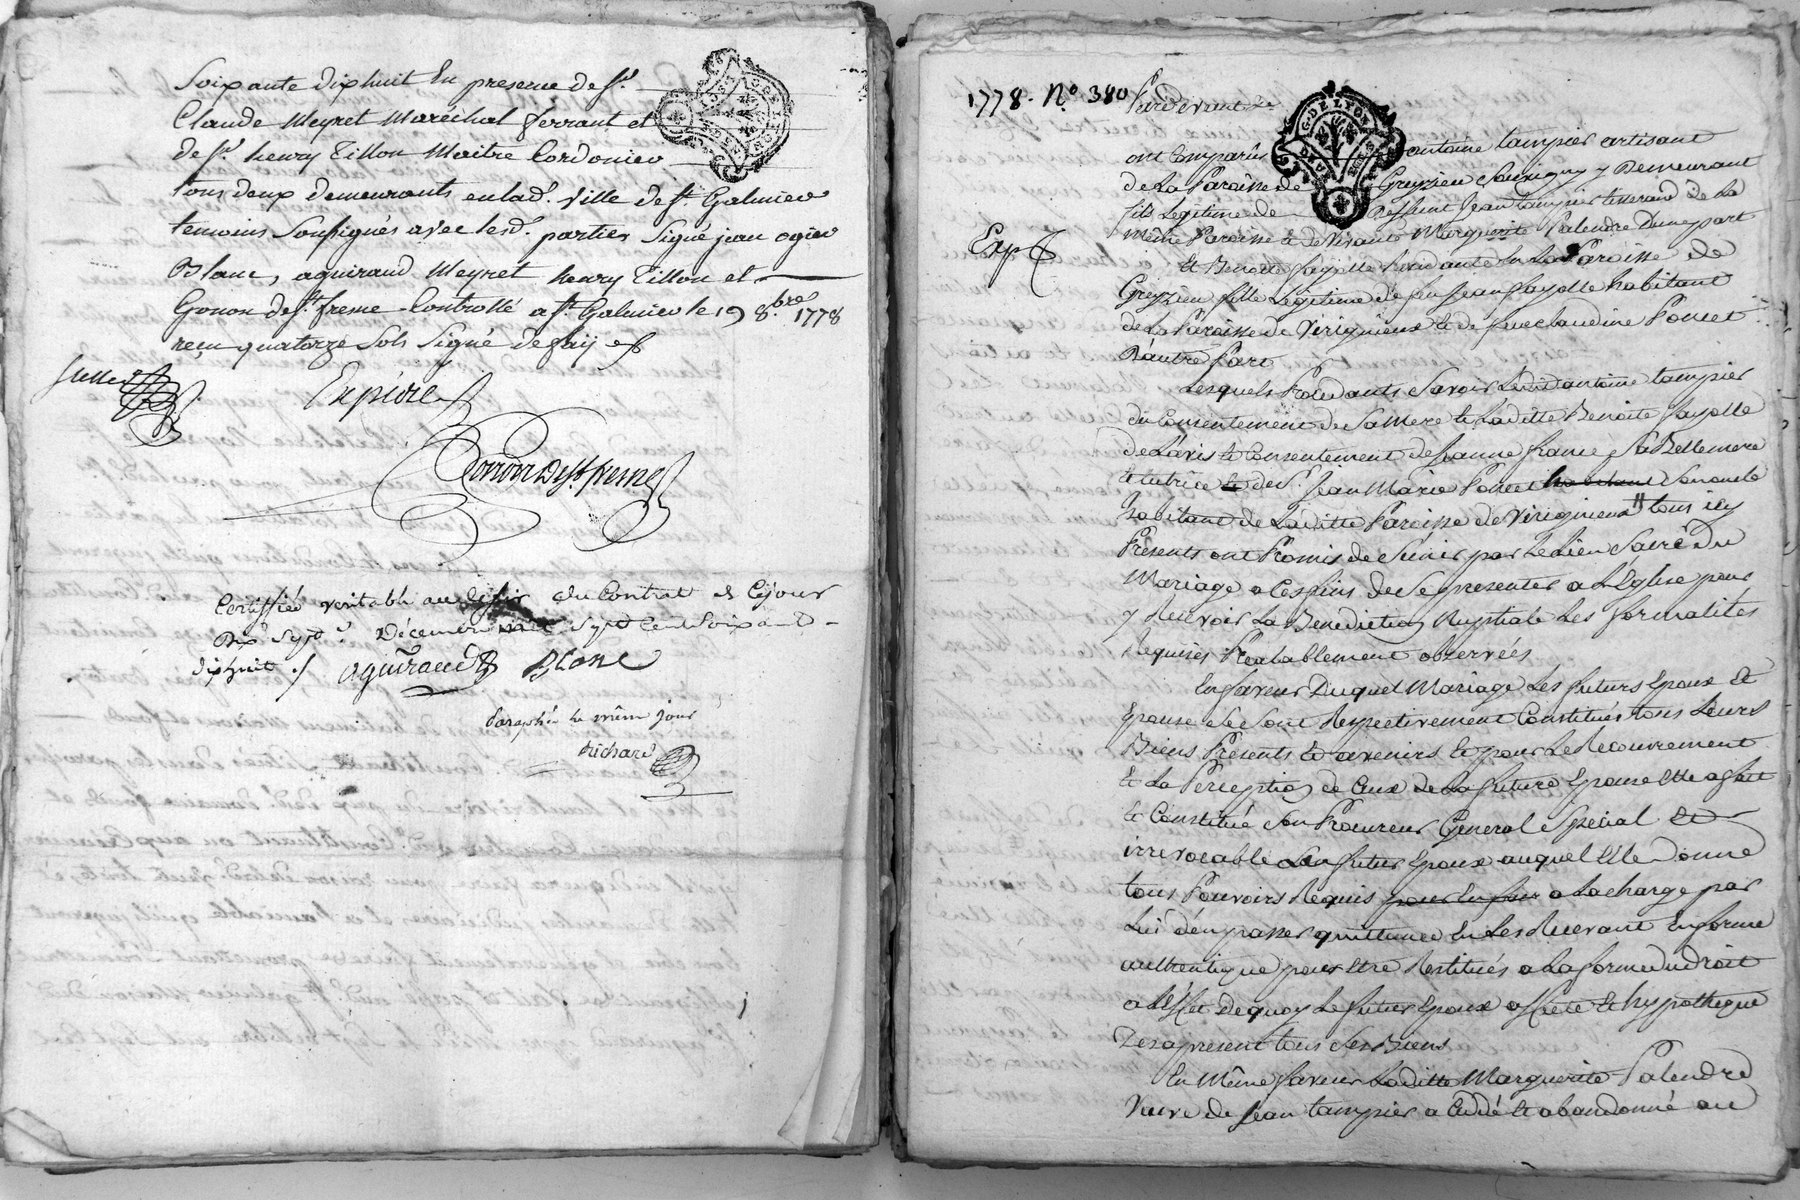 Soixante dixhuit En presence de Sr.
Claude Meyret Maréchal ferrant et
de Sr. henry Tillon Maitre Cordonier
tous deux demeurants en lad. ville de St. Galmier
temoins Soussignés avec lesd. parties Signé jean ogier
Blanc, aguiraud Meyret henry Tillon et
Gonon de St. fresne Controllé a St. Galmier le 19 8.bre 1778
reçu quatorze Sols Signé
Expédié
Gonon De St fresne
Certiffiée veritable au du Contrat de Cejour
Dix Sept Décembre mil Sept Cent Soixante
dixhuit ./. aguiraud Blanc
Paraphée le même jour
Richard
1778. No. 380 Pardevant Le
G. DE LYON
ont Comparûs antoine tampier artisant
de La Paroisse de Greyzieu Souvigny y Demeurant
fils Legitime de Deffunt Jean tampier tisserand de La
même Paroisse & de Vivante Marguerite Palendre Dune part
Exp.
Et Benoite fayolle Residante En La Paroisse de
Greyzieu fille Legitime de feu Jean fayolle habitant
de La Paroisse de Virignieux & de feue Claudine Poncet
D'autre Part
Lesquels Procedants Savoir Ledit antoine tampier
du Consentement de Sa Mere & Laditte Benoite fayolle
de Lavis & Consentement de Jeanne france Sa Bellemere
& tutrice & de Sr. Jean Marie Poncet habitant Son oncle
habitant de Laditte Paroisse de Virignieux tous icy
Présents ont Promis de S'unir par Le Lien Sacré Du
Mariage a Ces fins de Se presenter a L'Eglise pour
y Recevoir La Benediction Nuptiale Les formalités
Requises Prealablement observées
En faveur Duquel Mariage Les futurs Epoux Et
Epouse Se Sont Respectivement Constitués tous Leurs
Biens Présents & avenirs & pour Le Recouvrement
Et La Perception de Ceux de La future Epouse Elle a fait
& Constitué Son Procureur General Special Et
irrevocable Le futur Epoux auquel Elle Donne
tous Pouvoirs Requis pour Enfuir a La charge par
Lui d'en passer quittance En Les Recevant En forme
authentique pour Etre Restitués a La forme du droit
a L'effet de quoy Le futur Epoux affecte Et hypotheque
Des a present tous Ses Biens
En Même faveur Laditte Marguerite Palendre
Veuve de Jean tampier a Cedé & abandonné au